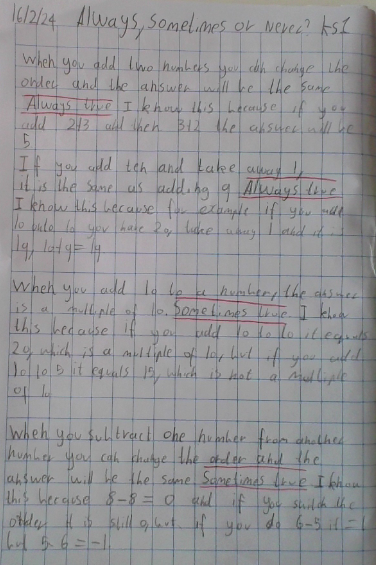 16/2/24 Always, Sometimes or Never? KS1
When you add two numbers you can change the
order and the answer will be the same
Always true I know this because if you
add 2+3 and then 3+2 the answer will be
5
If you add ten and takee away 1,
it is the same as adding 9 Always true
I know this because for example if you add
10 onto 10 you have 20, take away 1 and it is
19, 10+9=19
When you add 10 to a number, the answer
is a multiple of 10. Sometimes true I know
this because if you add 10 to 10 it equals
20, which is a multiple of 10, but if you add
10 to 5 it equals 15, which is not a multiple
of 10
When you subtract one number from another
number you can change the order and the
answer will be the same Sometimes true I know
this because 8-8=0 and if you switch the
order it is still 0, but if you do 6-5 it =1
but 5-6=-1